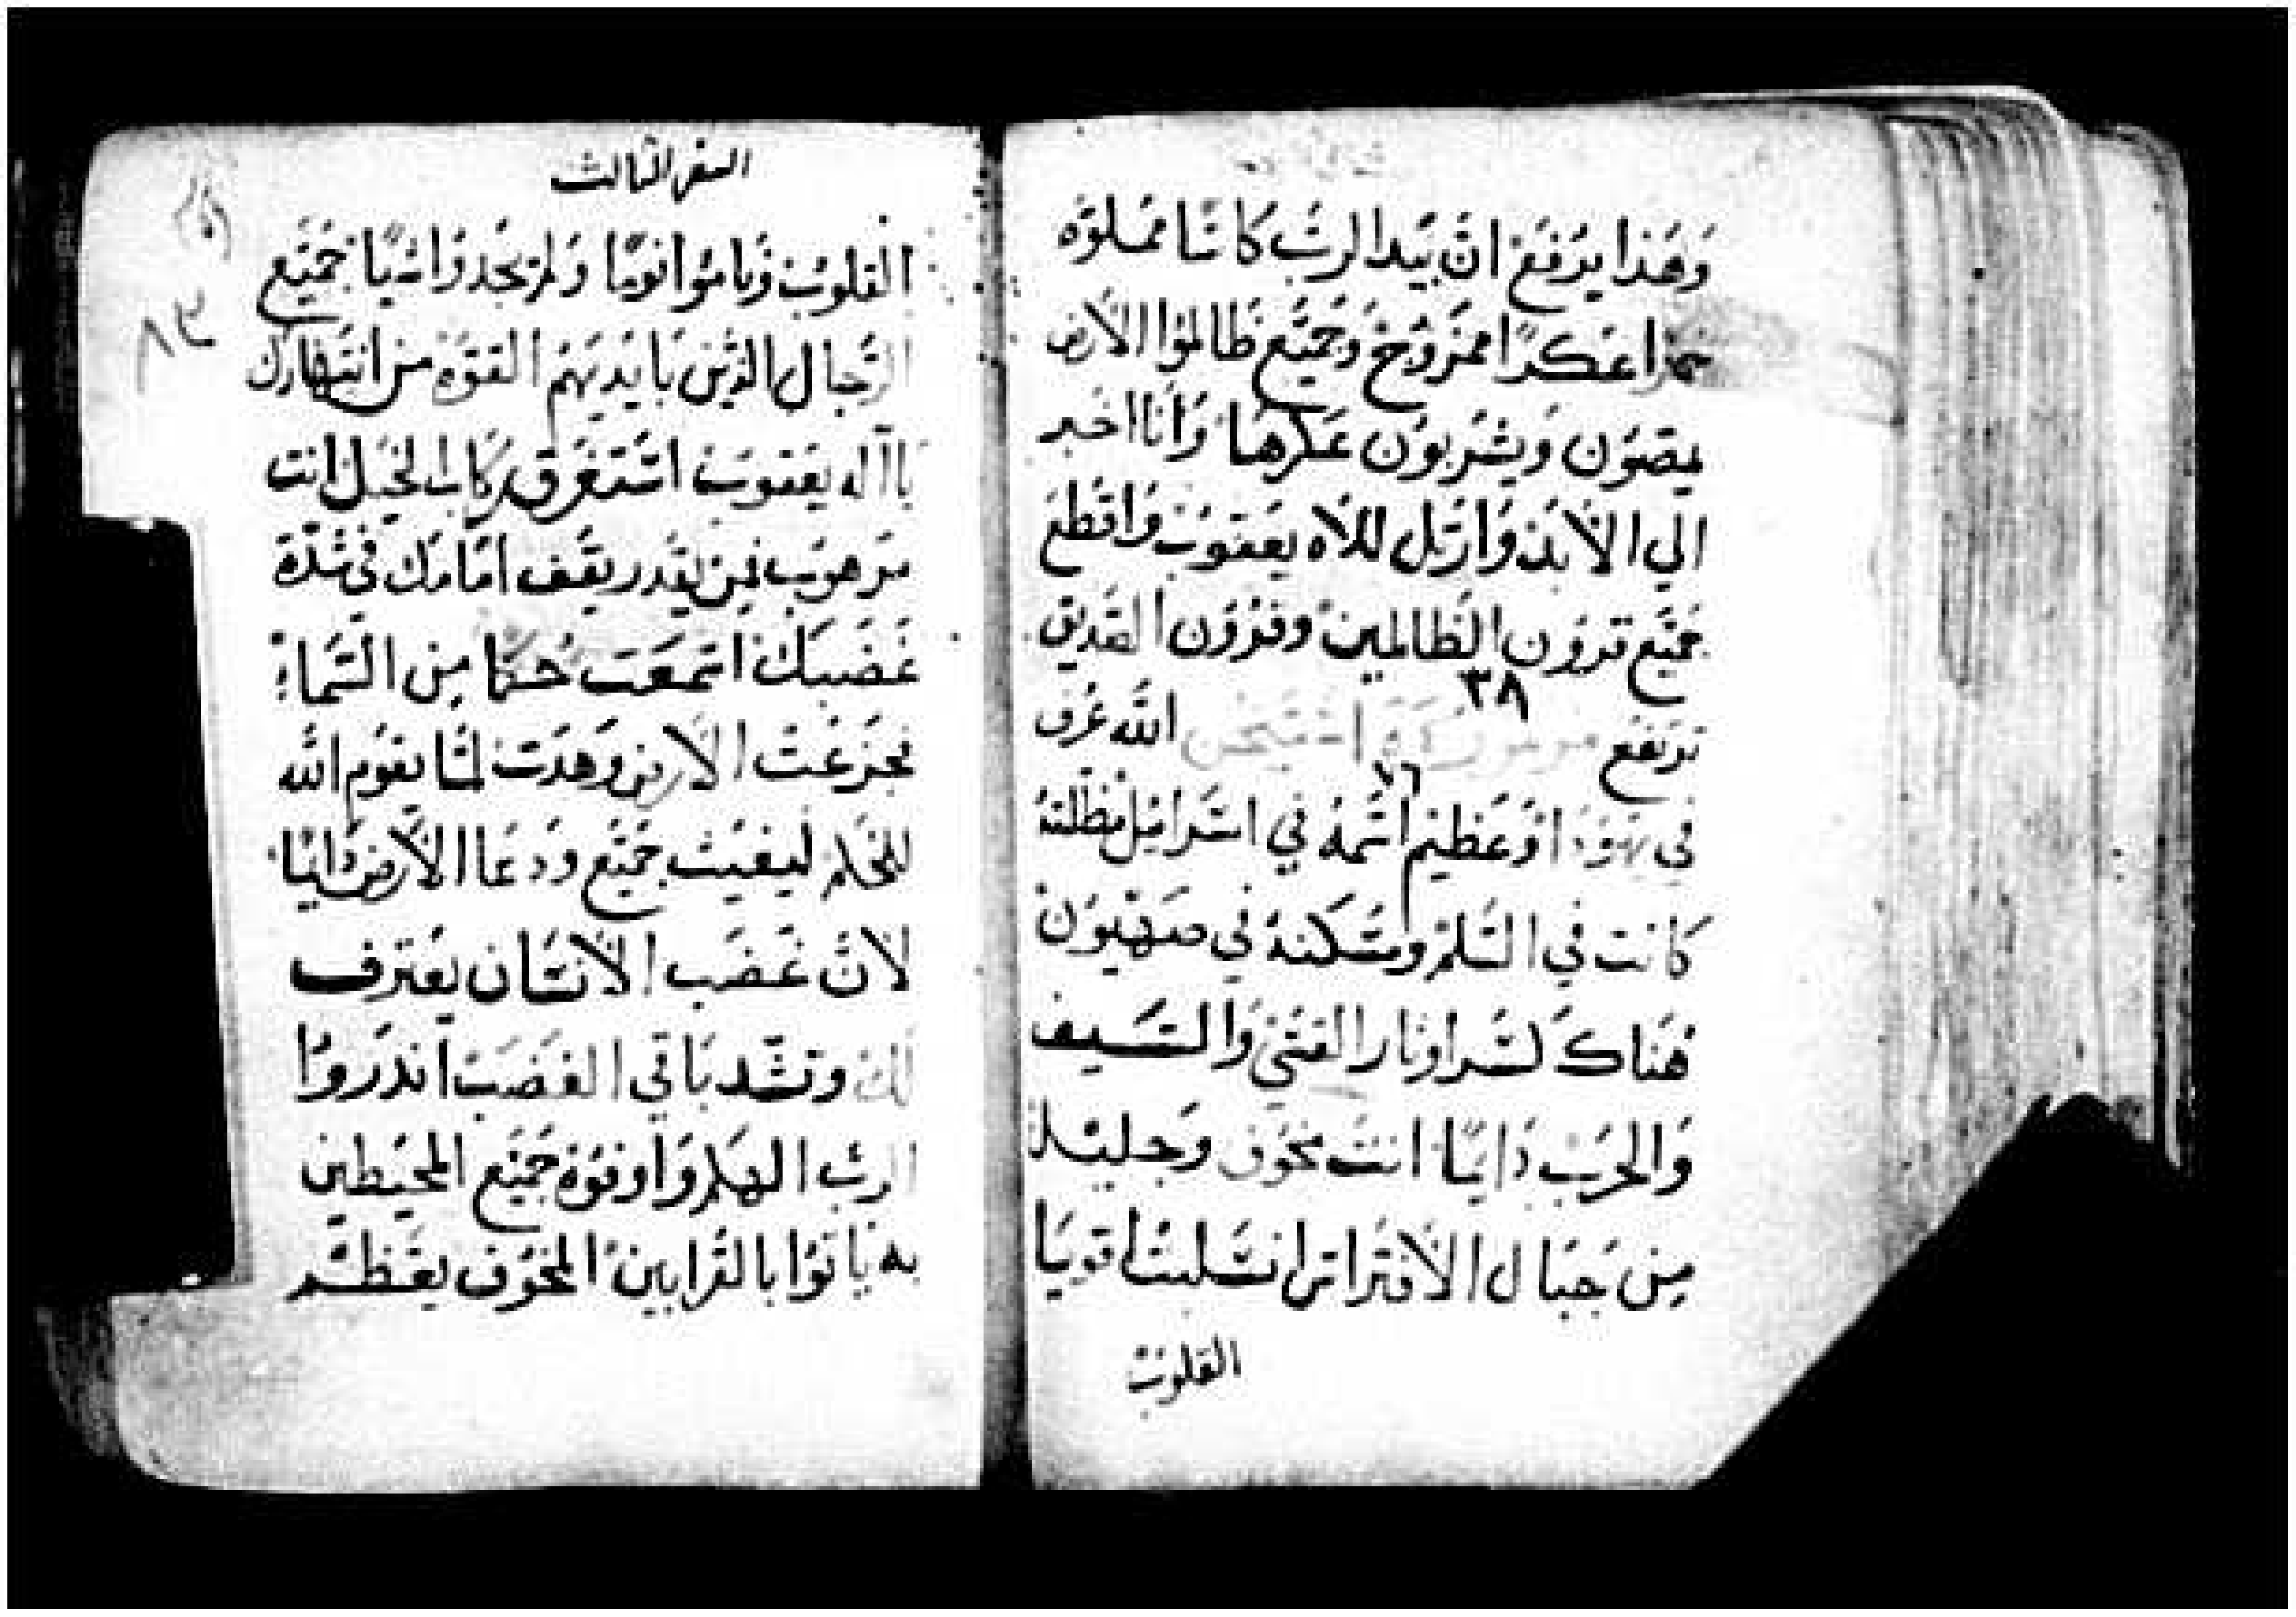 وهذا يرفع ان بيد الرب كاسا مملوه
خمرا عكرا ممزوج وجميع ظالموا الارض
يمصون ويشربون عكرها وانا اخبر
الي الابد وارتل للاه يعقوب واقطع
جميع قرون الظالمين وقرون الصديق
٣٨
ترتفع الله عرف
في يهودا وعظيم اسمه في اسرائيل مظلته
كانت في السلم ومسكنه في صهيون
هناك كسر اوتار القسي والسيف
والحرب دايما انت مخوف وجليل
من جبال الافتراس انسلبت اقويا
القلوب
السفر الثالث
٨٣
القلوب وناموا نوما ولم يجدوا شيا جميع
الرجال الذين بايديهم القوة من انتهارك
يا اله يعقوب استغرق ركاب الخيل انت
مرهوب فمن يقدر يقف امامك في شدة
غضبك اسمعت حكما من السماء
فجزعت الارض وهدت لما يقوم الله
للحكم ليغيث جميع ودعا الارض دايما
لان غضب الانسان يعترف
لك وتشد باقي الغضب اندروا
الرب الهكم واوفوه جميع المحيطين
به ياتوا بالقرابين المخوف يعظم